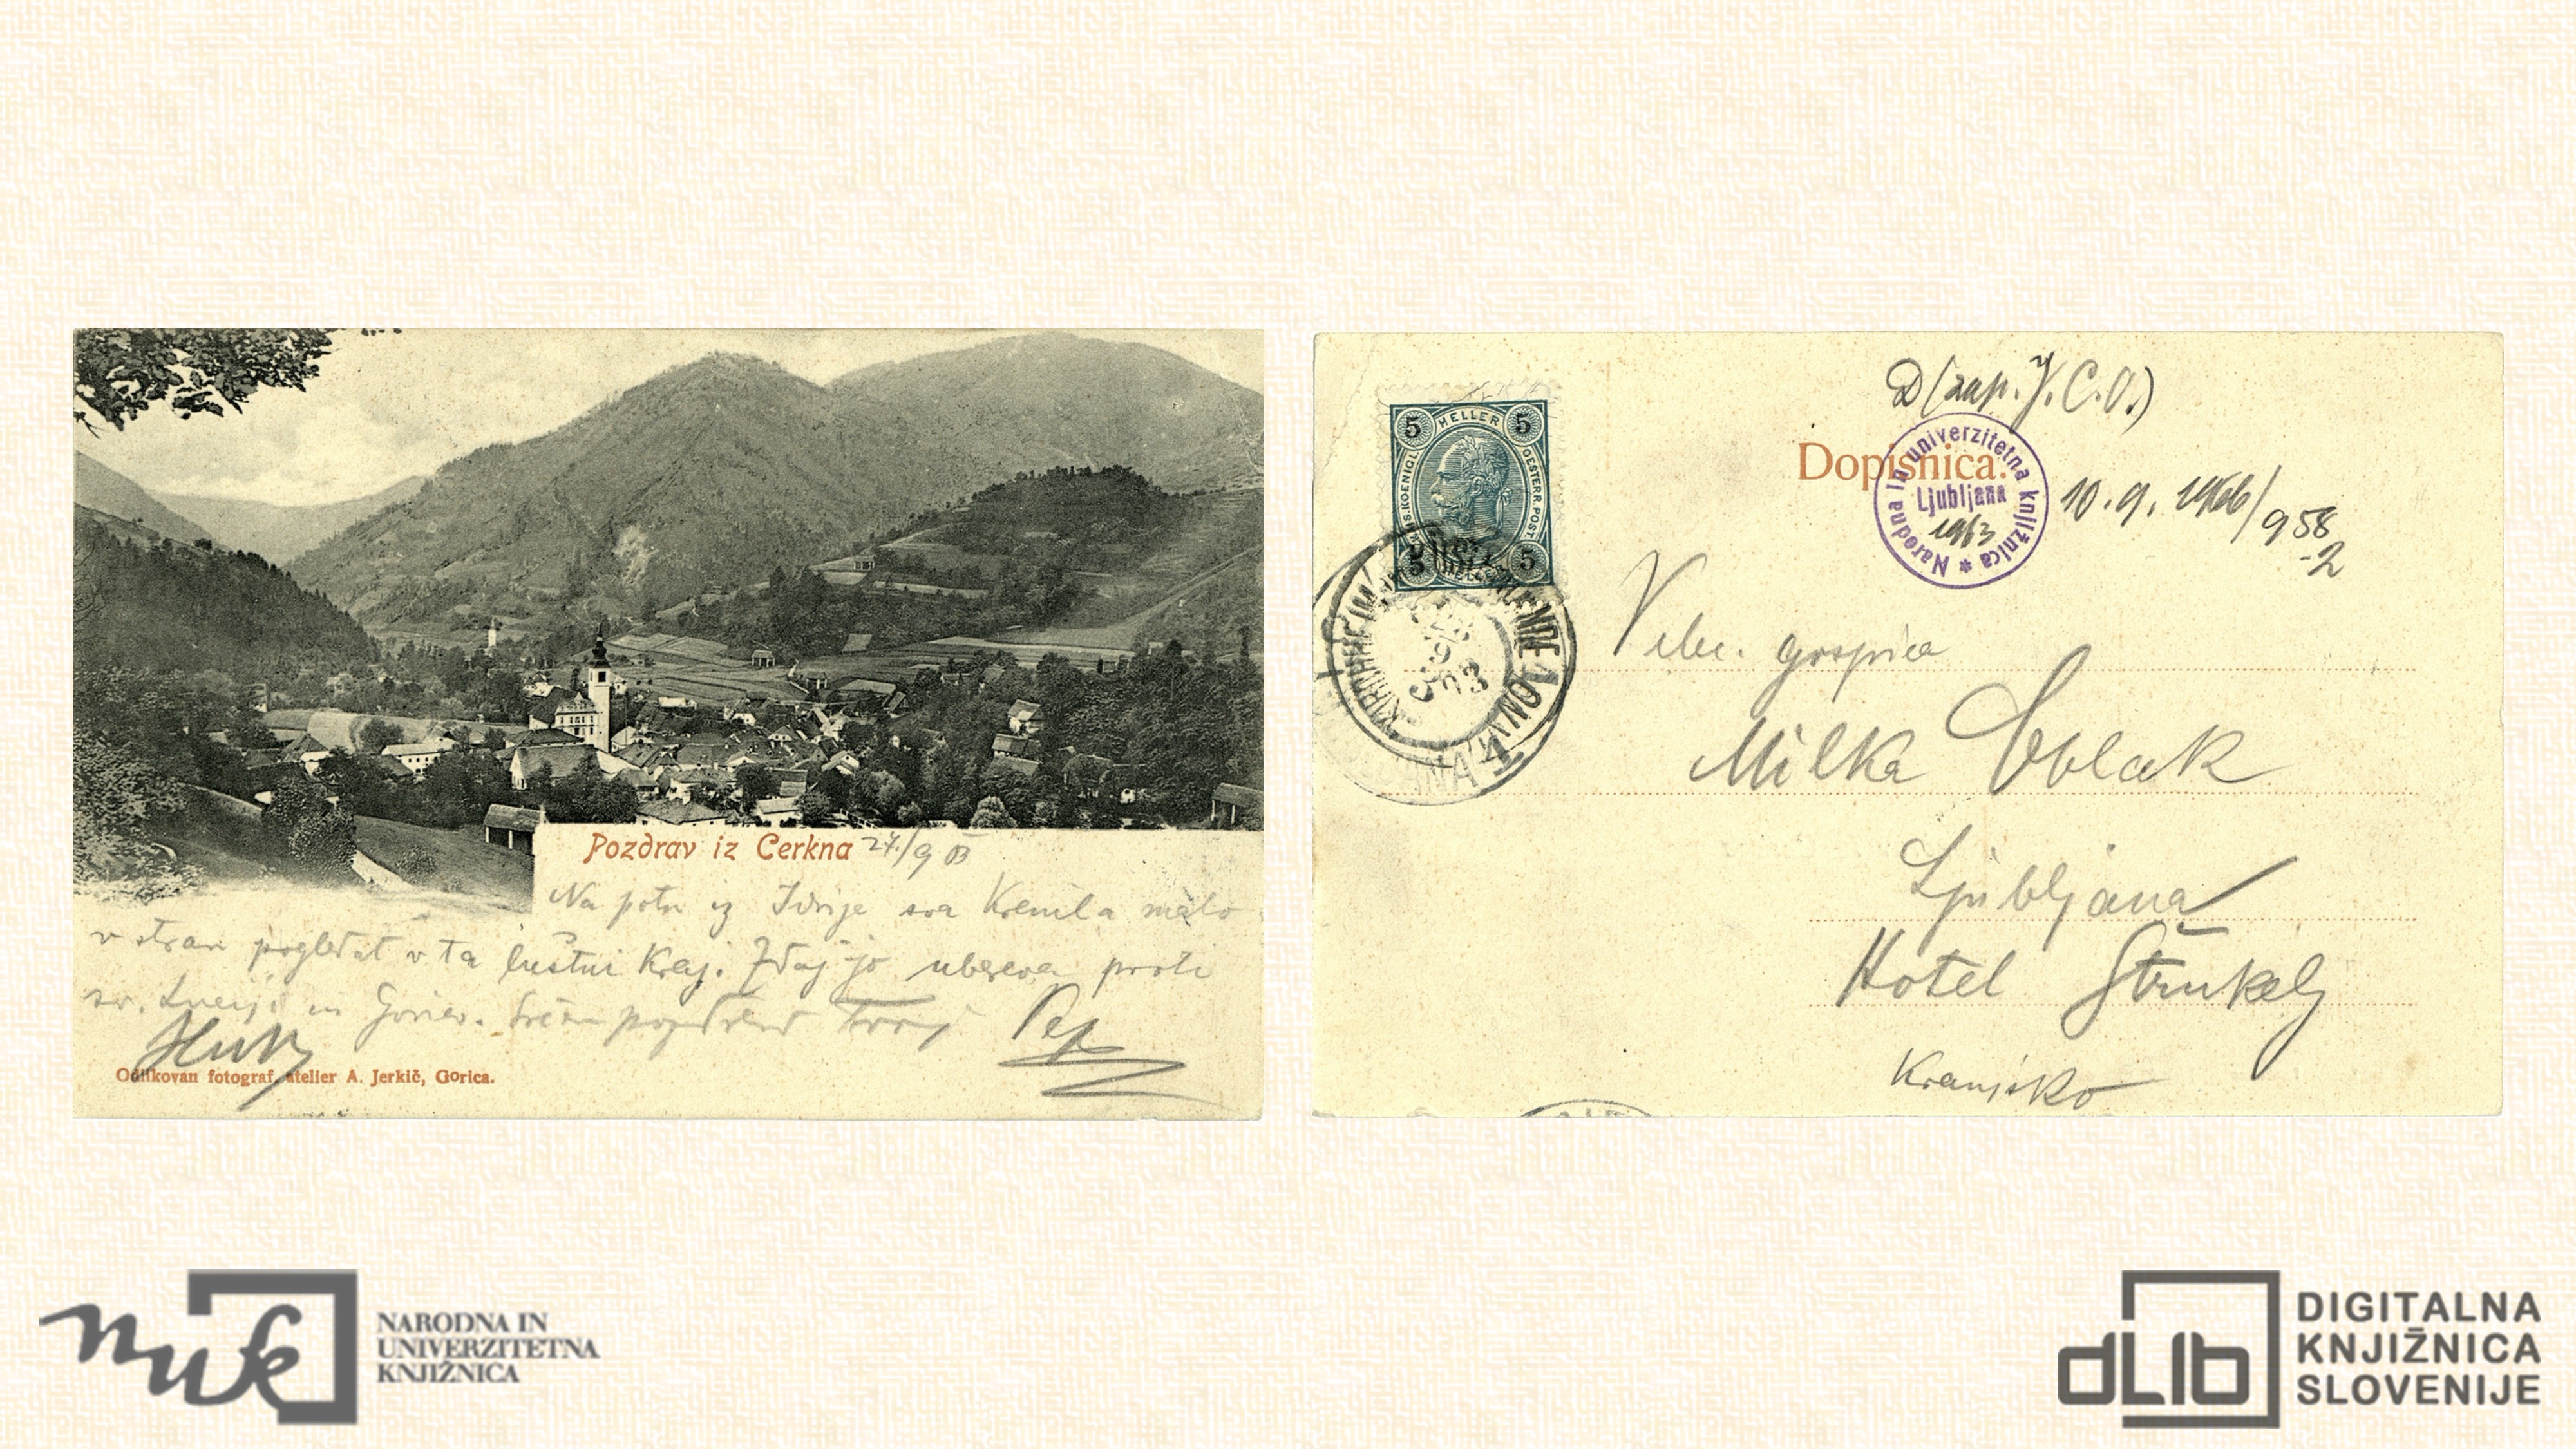 Pozdrav iz Cerkna 24./9 03
Na potu iz Idrije sva krenila malo
v stran pogledat v ta luštni kraj. Zdaj jo ubereva proti
sv. Luciji in Gorici. Srčen pozdrav Tvoj Pep
Odlikovan fotograf, atelier A. Jerkič, Gorica.
D (zap. J. C. O.)
Dopisnica.
Narodna in univerzitetna knjižnica *
Ljubljana
1963
10. 9. 1966/958-2
5 HELLER 5
OESTERR. POST
5 5
KIRCHHEIM
CIRKNO
Velec. gospica
Milka Oblak
Ljubljana
Hotel Štrukelj
Kranjsko
nuk
NARODNA IN
UNIVERZITETNA
KNJIŽNICA
dLib
DIGITALNA
KNJIŽNICA
SLOVENIJE